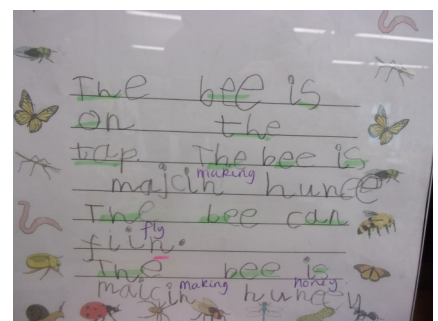 The bee is
on the
tap. The bee is
making
majcin hunee
The bee can
fly
fiin.
The bee is
making honey
majcin huneey